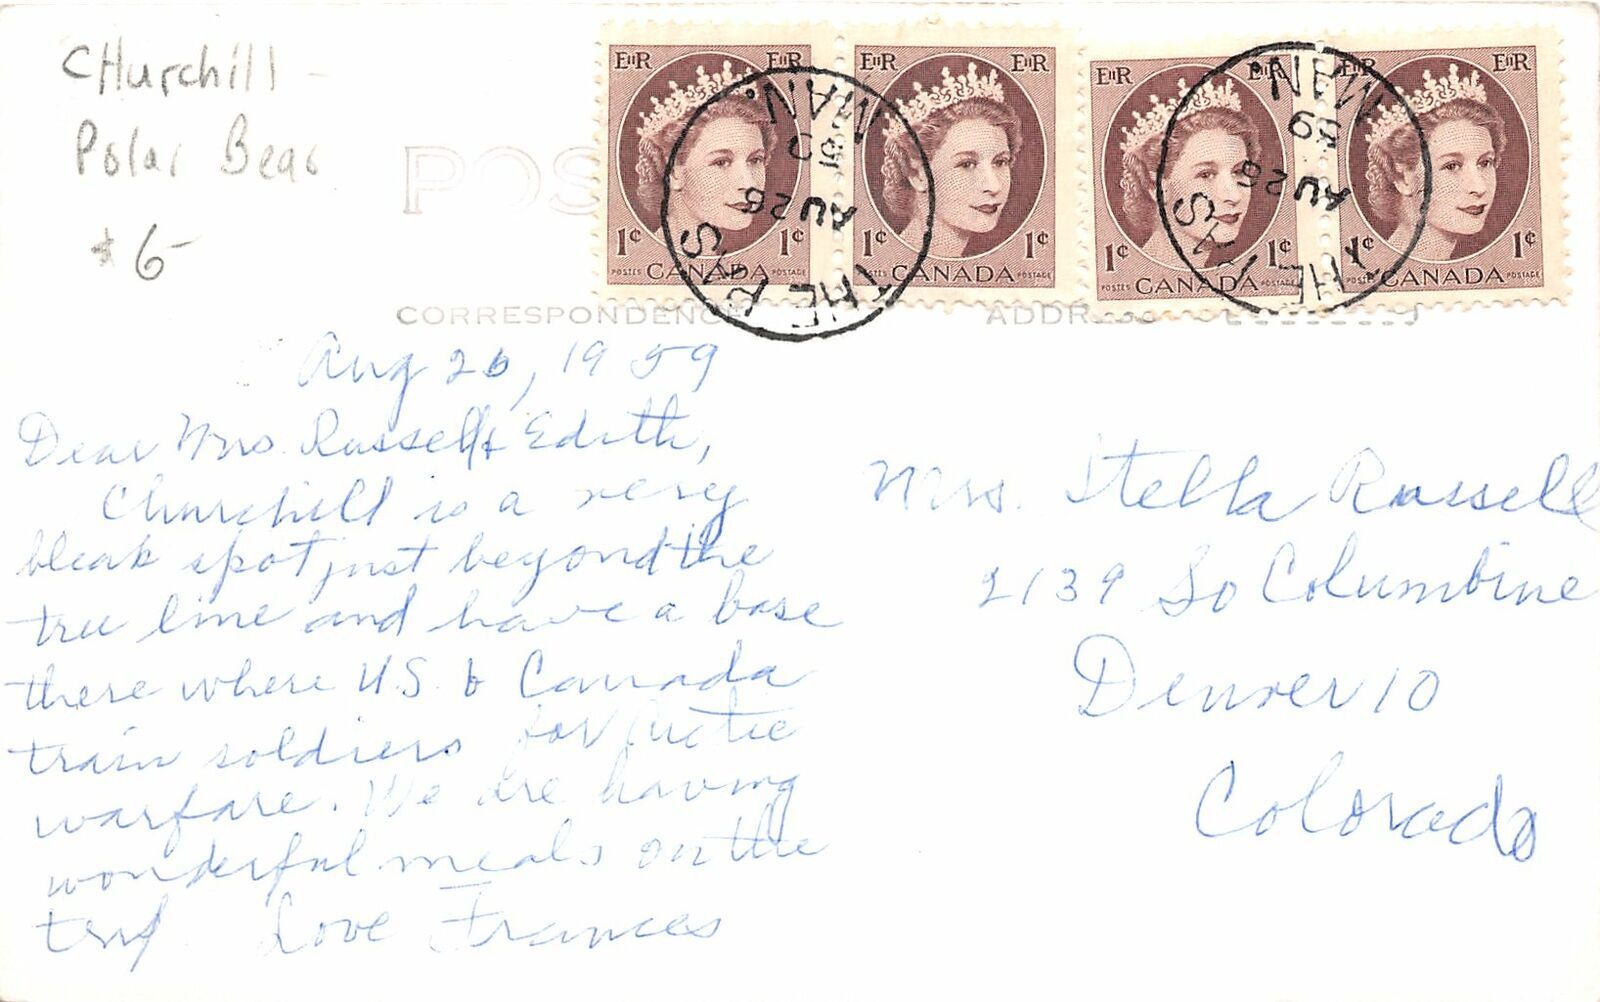 CHurchill -
Polar Bear
$6-
POS
EIIR EIIR
1¢ 1¢
POSTES CANADA POSTAGE
EIIR EIIR
1¢ 1¢
POSTES CANADA POSTAGE
EIIR EIIR
1¢ 1¢
POSTES CANADA POSTAGE
EIIR EIIR
1¢ 1¢
POSTES CANADA POSTAGE
THE PAS
AU 26
59
MAN.
THE PAS
AU 26
59
MAN.
CORRESPONDENCE
ADDR
Aug 26, 1959
Dear Mrs. Russell & Edith,
Churchill is a very
bleak spot just beyond the
tree line and have a base
there where U.S. & Canada
train soldiers for Arctic
warfare. We are having
wonderful meals on the
Love Frances
Mrs. Stella Russell
2139 So Columbine
Denver 10
Colorado